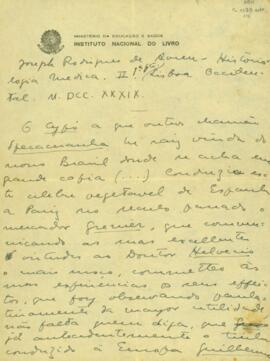 MINISTÉRIO DA EDUCAÇÃO E SAÚDE
INSTITUTO NACIONAL DO LIVRO
Joseph Rodrigues de Abreu - Histório-
logia Medica. II Lisboa Occiden-
tal. M. DCC. XXXIX.
O Cypó a que outros chamão
Ipecacuanha he raiz vinda do
nosso Brasil donde se acha em
grande copia (...) Conduzio es-
te celebre vegetavel de Espanha
a Pariz no seculo passado o
mercador Grenier, que commu-
nicando as suas excellentes
virtudes ao Doutor Helvecio
o mais moço, commetteo ás
suas experiencias os seus effei-
tos, que foy observando paula-
tinamente da mayor utilidade
não falta quem diga, que
já antecedentemente tinha
conduzido à Europa Guilher-